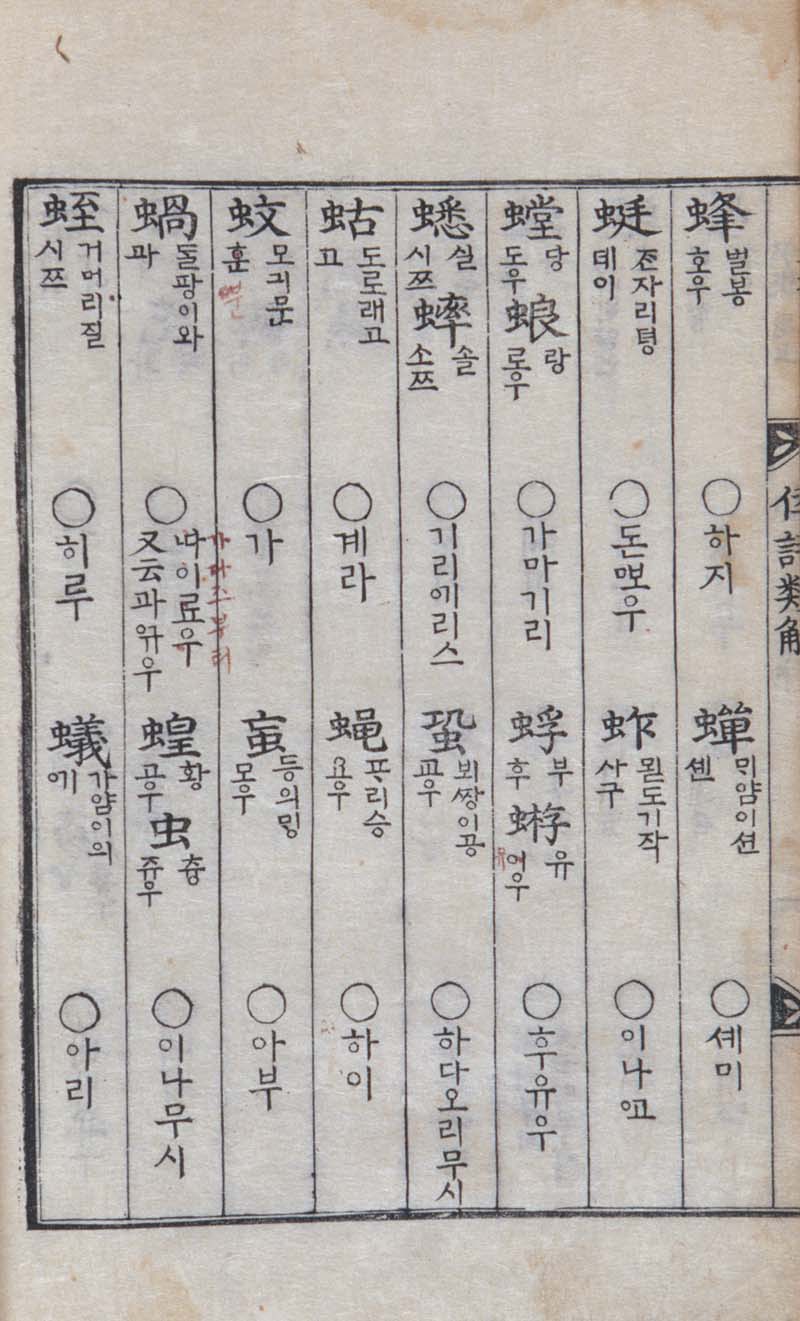 蜂 벌봉 호우 ○하지
蟬 ᄆᆡ얌이션 셴 ○셰미
蜓 ᄌᆞᆫ자리텽 데이 ○돈ᄲᅩ우
蚱 묃도기작 사구 ○이나ᅇᅩ
螳 당 도우 蜋 랑 로우 ○가마기리
蜉 부 후 蝣 유 여우 ○후유우
蟋 실 시쯔 蟀 솔 소쯔 ○기리ᅇᅵ리스
蛩 뵈ᄧᅡᆼ이공 교우 ○하다오리무시
蛄 도로래고 고 ○계라
蝇 ᄑᆞ리승 요우 ○하이
蚊 모긔문 훈 ○가
䖟 등의ᄆᆡᆼ 모우 ○아부
蝸 돌팡이와 과 ○ 료우 又云과ᅇᅲ우
蝗 황 고우 虫 츙 쥬우 ○이나무시
蛭 거머리질 시쯔 ○히루
蟻 가얌이의 ᅇᅵ ○아리
語類